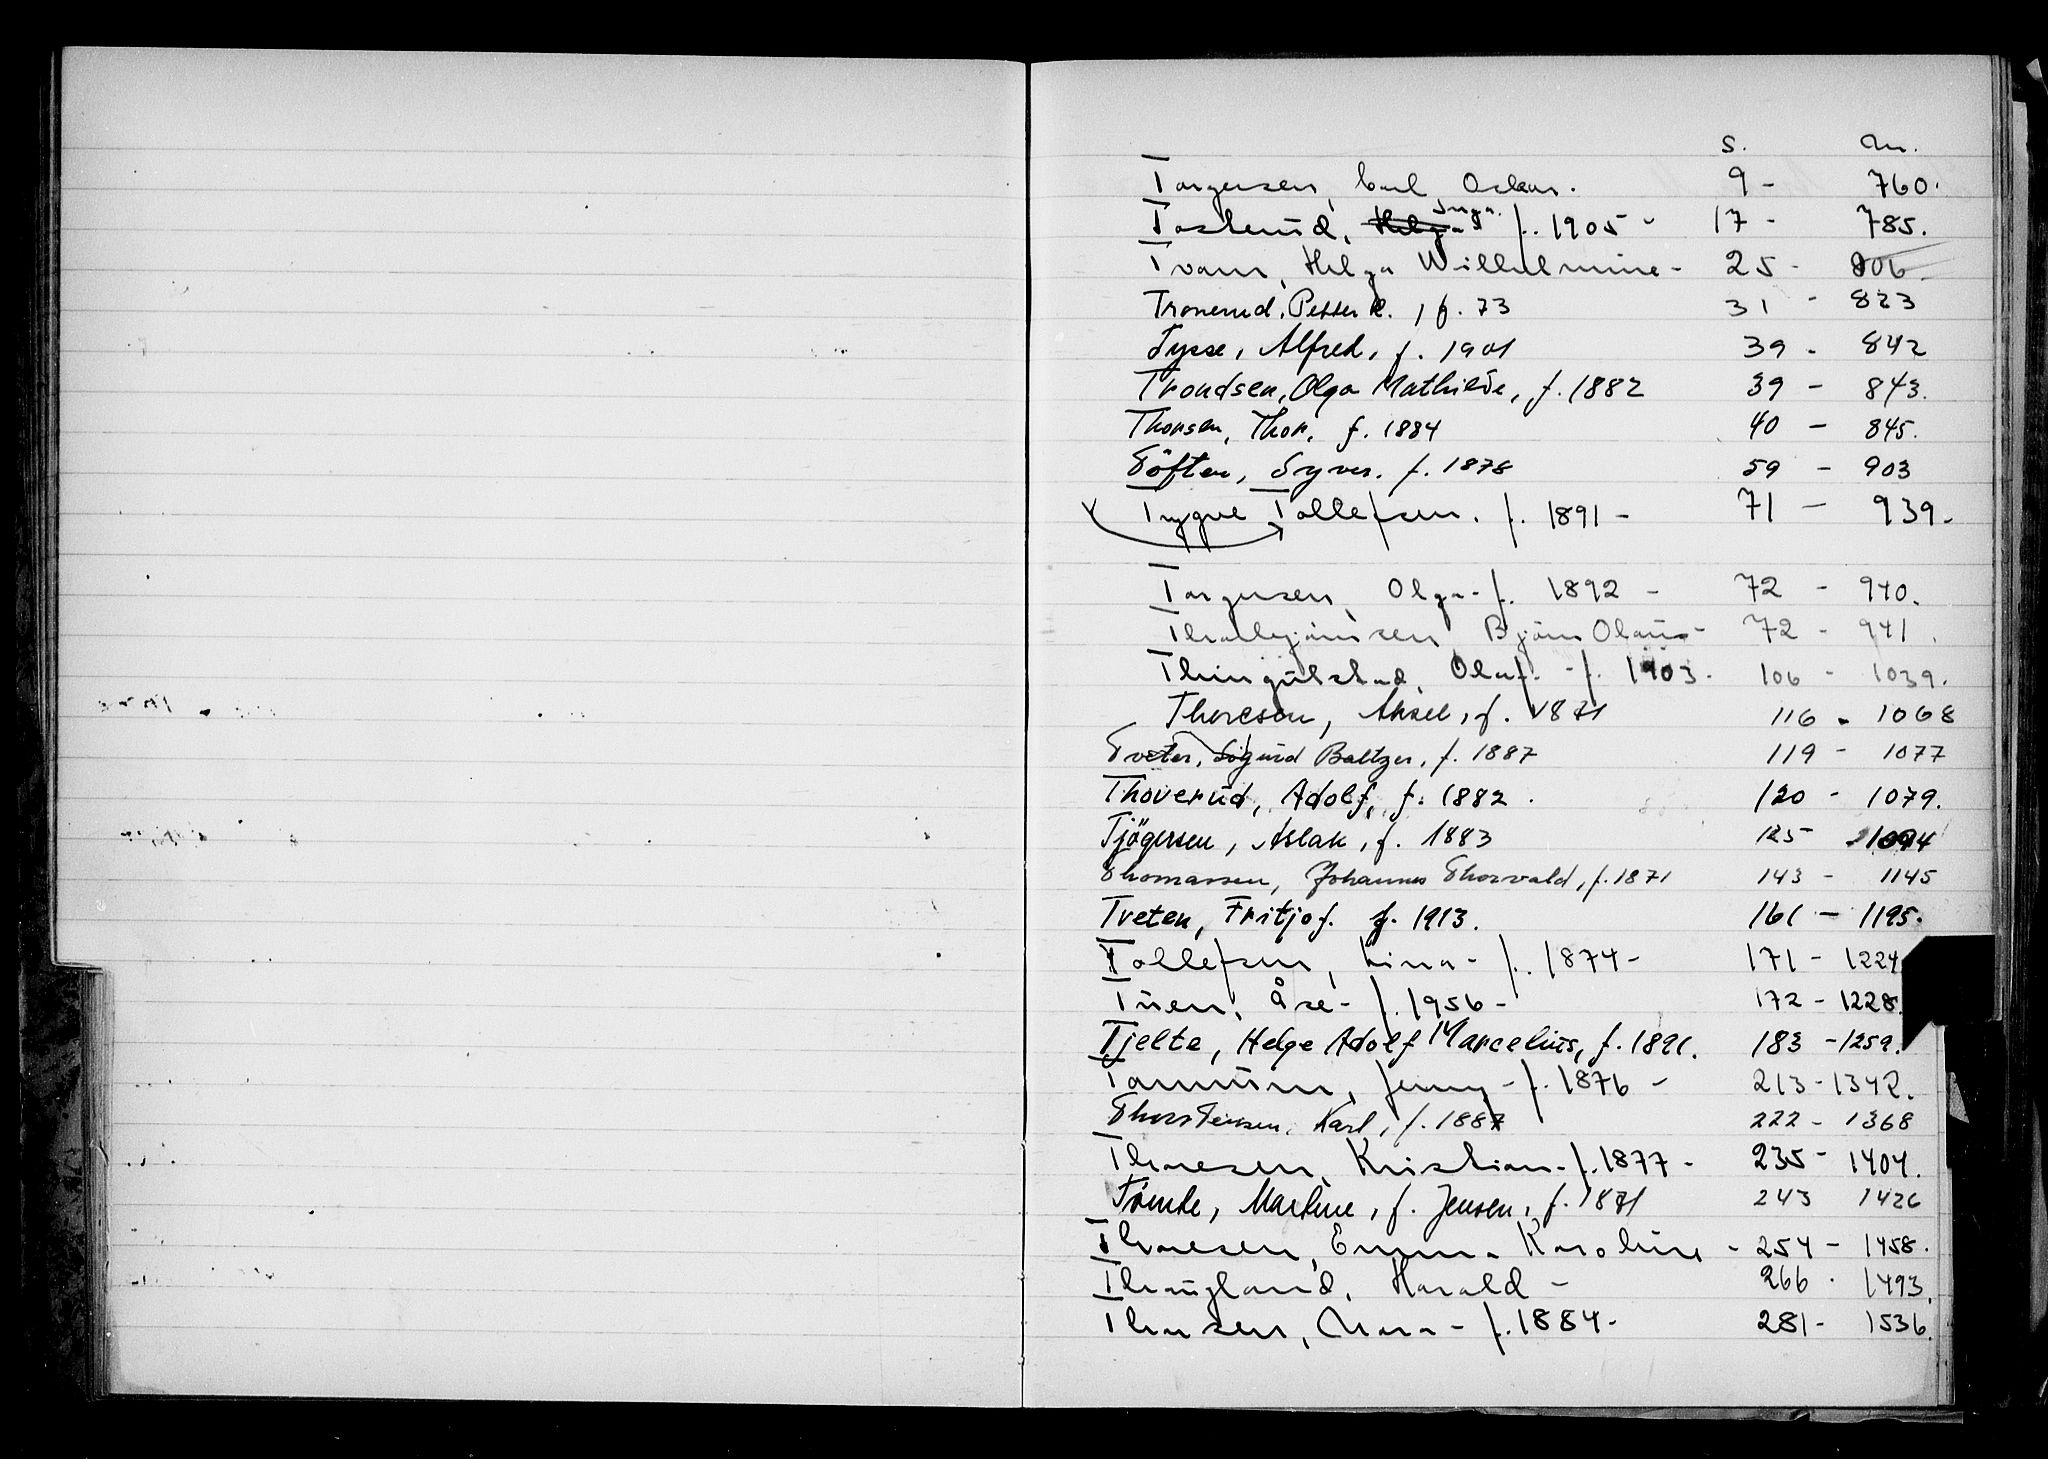 S. Nr.
Torgersen, Carl Oskar. 9 - 760.
Tosterud, Helga Inga. f. 1905 - 17 - 785.
Tvam, Helga Wilhelmine - 25 - 806.
Tronerud, Petter K., f. 73 31 - 823
Tysse, Alfred, f. 1901 39 - 842
Trondsen, Olga Mathilde, f. 1882 39 - 843.
Thorsen, Thor, f. 1884 40 - 845.
Töften, Syver. f. 1878 59 - 903
Trygve Tollefsen. f. 1891 - 71 - 939.
Torgersen, Olga - f. 1892 - 72 - 940.
Bjørn Olaus - 72 - 941.
Thingulstad, Olaf. - f. 1903. 106 - 1039.
Thoresen, Aksel, f. 1871 116 - 1068
Tveter, Sigurd Baltzer, f. 1887 119 - 1077
Thoverud, Adolf, f. 1882. 120 - 1079.
Tjögersen, Aslak, f. 1883 125 - 1094
Thomassen, Johannes Thorvald, f. 1871 143 - 1145
Tveten, Fritjof. f. 1913. 161 - 1195.
Tollefsen, Lina - f. 1874 - 171 - 1224
Tuen, Åse - f. 1956 - 172 - 1228.
Tjelte, Helge Adolf Marcelius, f. 1891. 183 - 1259.
Tanum, Jenny - f. 1876 - 213 - 1342.
Thorstensen, Karl, f. 1887 222 - 1368
Thoresen, Kristian - f. 1877 - 235 - 1404.
Tömte, Martine, f. Jensen, f. 1871 243 1426
Thoresen, Emma Karoline - 254 - 1458.
Thaugland, Harald - 266 - 1493.
Thorsen, Nora - f. 1884 - 281 - 1536.